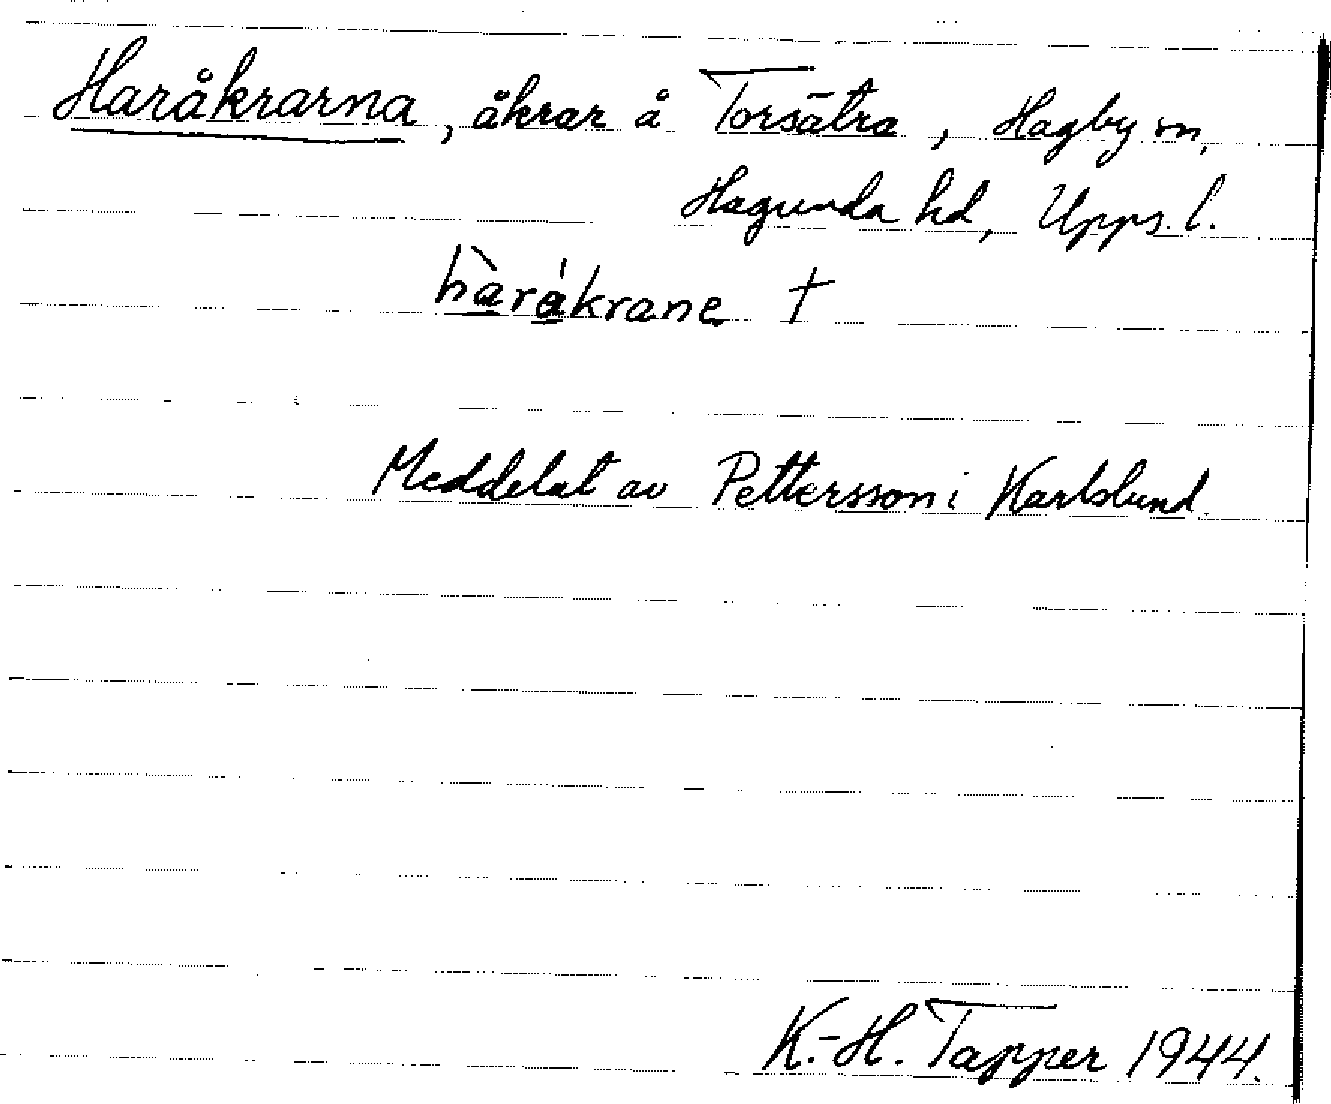 Haråkrarna, åkrar å Torsätra, Hagby sn,
Hagunda hd, Upps. l.
hàråkrane †
Meddelat av Pettersson i Karlslund.
K.-H. Tapper 1944.